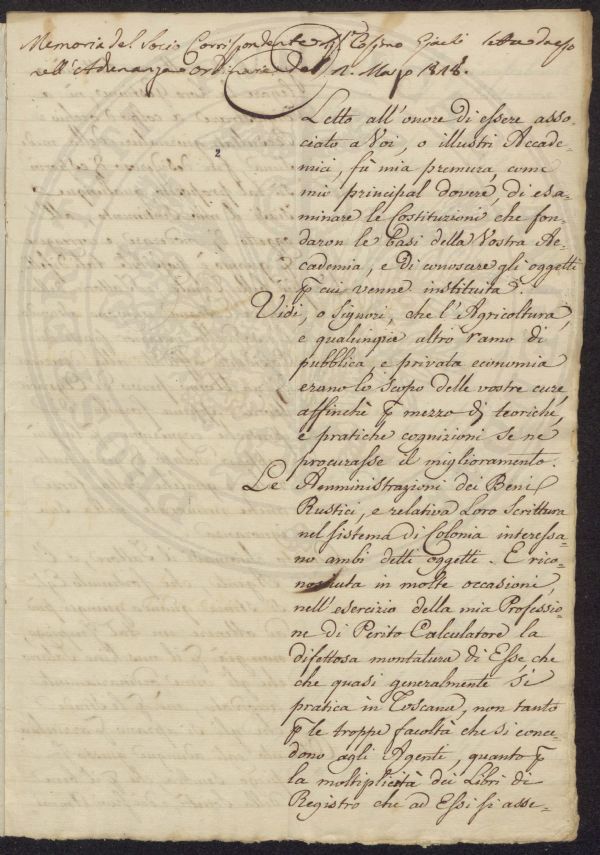 Memoria del Socio Corrispondente Sig.r Cosimo letta da esso
nell'Adunanza Ordinaria del 12. Marzo 1818.
2
Letto all'onore di essere asso-
ciato a Voi, o illustri Accade-
mici, fù mia premura, come
mio principal dovere, di esa-
minare le Costituzioni che fon-
daron le basi della Vostra Ac-
cademia, e di conoscere gli oggetti
p cui venne instituita.
Vidi, o Signori, che l'Agricoltura,
e qualunque altro ramo di
pubblica, e privata economia
erano lo scopo delle vostre cure,
affinchè p mezzo di teoriche,
e pratiche cognizioni se ne
procurasse il miglioramento.
Le Amministrazioni dei Beni
Rustici, e relativa Loro Scrittura
nel sistema di Colonia interessa-
no ambi detti oggetti. E rico-
nosciuta in molte occasioni,
nell'esercizio della mia Professio-
ne di Perito Calculatore la
difettosa montatura di Esse, che
che quasi generalmente si
pratica in Toscana, non tanto
p le troppe facoltà che si conce-
dono agli Agenti, quanto p
la moltiplicità dei Libri di
Registro che ad Essi si asse-